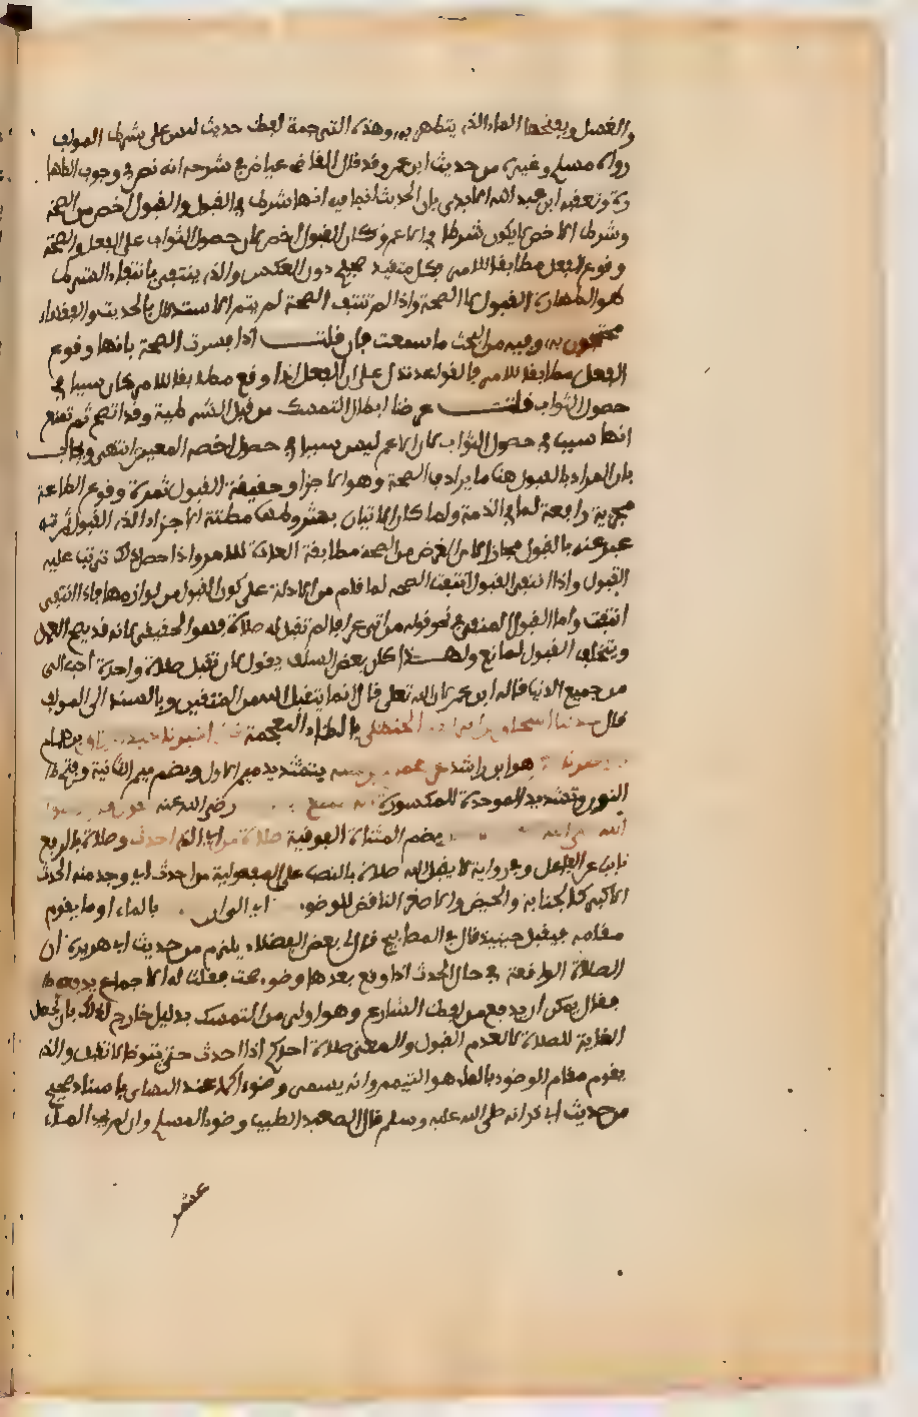 والغسل وبفتحها الماء الذي يتطهر به وهذه الترجمة لفظ حديث ليس على شرط المولف
رواه مسلم وغيره من حديث ابن عمر وقد قال القاضي عياض في شرحه انه نص في وجوب الطها
رة وتعقبه ابن عبد الله الابدي بان الحديث انما فيه انها شرط في القبول والقبول اخص من الصحة
وشرط الاخص لا يكون شرطا في الاعم وكان القبول اخص لان حصول الثواب على الفعل والصحة
وقوع الفعل مطابقا للامر فكل متقبل صحيح دون العكس والذي ينتفي بانتفاء الشرط
هو الطهارة القبول لا الصحة واذا لم تنتف الصحة لم يتم الاستدلال بالحديث والفقهاء
محتجون به وفيه من البحث ما سمعت فان قلت اذا فسرت الصحة بانها وقوع
الفعل مطابقا للامر فالقواعد تدل على ان الفعل اذا وقع مطابقا للامر كان سببا في
حصول الثواب قلت غرضنا ابطال التمسك من قبل الشرطية وقد اتضح ثم نمنع
انها سبب في حصول الثواب لان الاعم ليس سببا في حصول اخصه المعين انتهى ويجاب
بان المراد بالقبول هنا ما يرادف الصحة وهو الاجزاء وحقيقة القبول ثمرة وقوع الطاعة
مجزية رافعة لما في الذمة ولما كان الاتيان بشروطها مظنة الاجزاء الذي القبول ثمرته
عبر عنه بالقبول مجازا لان الغرض من الصحة مطابقة العبادة للامر واذا حصل ذلك ترتب عليه
القبول واذا انتفى القبول انتفت الصحة لما قام من الادلة على كون القبول من لوازمها فاذا انتفى
انتفت واما القبول المنفي في نحو قوله من اتى عرافا لم تقبل له صلاة فهو الحقيقي لانه قد يصح العمل
ويتخلف القبول لمانع ولهذا كان بعض السلف يقول لان تقبل صلاة واحدة احب الي
من جميع الدنيا قاله ابن عمر لان الله تعلى قال انما يتقبل الله من المتقين وبالسند الى المولف
قال حدثنا اسحاق بن ابراهيم الحنظلي بالظاء المعجمة قال اخبرنا عبد الرزاق بن همام
هو ابن راشد عن همام بن منبه بتشديد ميم الاول وبضم ميم الثانية وفتح
النون وتشديد الموحدة المكسورة انه سمع رضي الله عنه يقول قال رسول
الله صلى الله بضم المثناة الفوقية صلاة من اي الذي احدث وصلاة بالرفع
نائب عن الفاعل وفي رواية لا يقبل الله صلاة بالنصب على المفعولية من احدث اي وجد منه الحدث
الاكبر كالجنابة والحيض والاصغر الناقض للوضوء اي الى ان بالماء او ما يقوم
مقامه فيقبل حينيذ قال في المصابيح قال لي بعض الفضلاء يلزم من حديث ابي هريرة ان
الصلاة الواقعة في حال الحدث اذا وقع بعدها وضوء صحت فقلت له الاجماع يدفعه
فقال يمكن ان يدفع من لفظ الشارع وهو اولى من التمسك بدليل خارج وذلك بان تجعل
الغاية للصلاة لا لعدم القبول والمعنى صلاة احدكم اذا احدث حتى يتوضا لا تقبل والذي
يقوم مقام الوضوء بالماء هو التيمم وانه يسمى وضوءا كما عند النساي باسناد صحيح
من حديث ابي ذر انه صلى الله عليه وسلم قال الصعيد الطيب وضوء المسلم وان لم يجد الماء
عشر